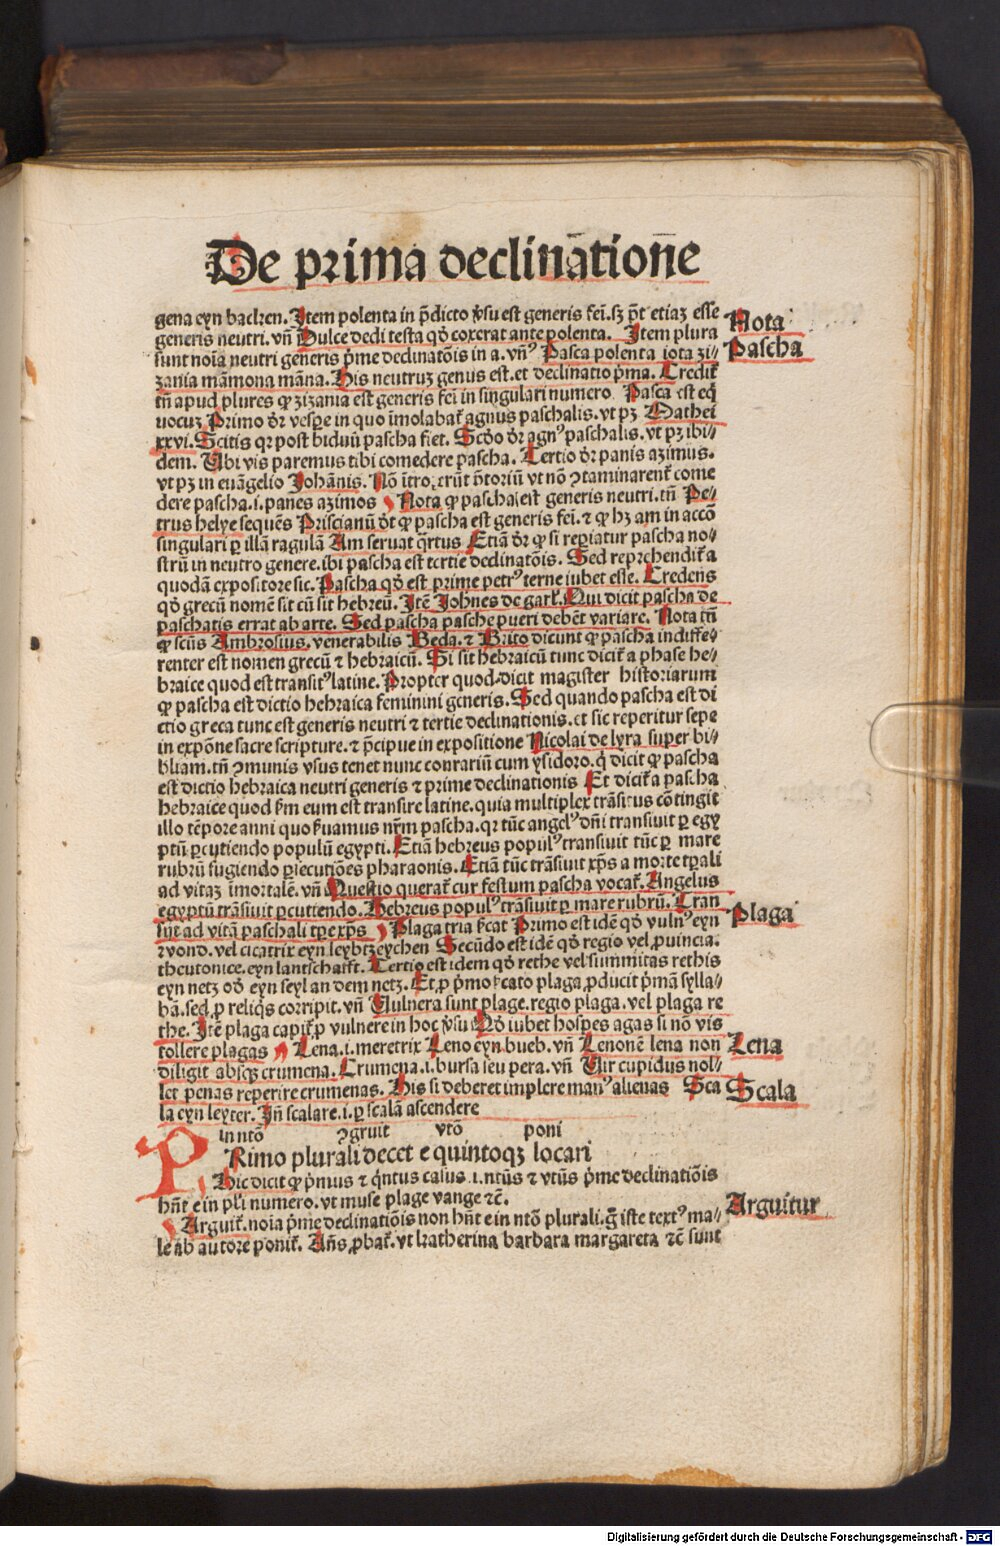 De prima declinatiōne
gena eyn backen. Item polenta in p̄dicto v̓su est generis fei̅. sꝫ pōt etiaꝫ esse
generis neutri. vn̄ Dulce dedi testa qd̓ coxerat ante polenta. Item plura
sunt noīa neutri generis p̄me declinatōis in a. vn̄ꝰ Pasca polenta iota zi⸗
zania māmona māna. His neutruꝫ genus est. et declinatio p̄ma. Credit̄
tn̄ apud plures ꝙ zizania est generis fei̅ in singulari numero Pasca est eq̄
uocuꝫ Primo dr̄ vespe in quo īmolabat̄ agnus paschalis. vt pꝫ Mathei
xxvi. Scitis qꝛ post biduū pascha fiet. Scd̓o dr̄ agnꝰ paschalis. vt pꝫ ibi⸗
dem. Ubi vis paremus tibi comedere pascha. Tertio dr̄ panis azimus.
vt pꝫ in euāgelio Johānis. Nō ītroierūt p̄toriū vt nō ꝯtaminarent̄ come
dere pascha. i. panes azimos Nota ꝙ pascha est generis neutri. tn̄ Pe⸗
trus helye sequēs Priscianū dt̓ ꝙ pascha est generis fei̅. ⁊ ꝙ hꝫ am in accō
singulari ꝑ illā ragulā Am seruat q̄rtus Etiā dr̄ ꝙ si reꝑiatur pascha no⸗
strū in neutro genere. ibi pascha est tertie declinatōis. Sed reprehendit̄ a
quodā expositore sic. Pascha qd̓ est prime petrꝰ terne iubet esse. Credens
qd̓ grecū nomē sit cū sit hebreū. Itē Johnes de garl̄. Qui dicit pascha de
paschatis errat ab arte. Sed pascha pasche pueri debēt variare. Nota tn̄
ꝙ scūs Ambrosius. venerabilis Beda. ⁊ Brito dicunt ꝙ pascha indiffe⸗
renter est nomen grecū ⁊ hebraicū. Si sit hebraicū tunc dicit̄ a phase he⸗
braice quod est transitꝰ latine. Propter quod dicit magister historiarum
ꝙ pascha est dictio hebraica feminini generis. Sed quando pascha est di
ctio greca tunc est generis neutri ⁊ tertie declinationis. et sic reperitur sepe
in expōne sacre scripture. ⁊ p̄cipue in expositione Nicolai de lyra super bi⸗
bliam. tn̄ ꝯmunis vsus tenet nunc contrariū cum ysidoro. q̓ dicit ꝙ pascha
est dictio hebraica neutri generis ⁊ prime declinationis Et dicit̄ a pascha
hebraice quod s̄m eum est transire latine. quia multiplex trāsitus cōtingit
illo tēpore anni quo s̓uamus nr̄m pascha. qꝛ tūc angelꝰ dn̄i transiuit ꝑ egy
ptū ꝑcutiendo populū egypti. Etiā hebreus populꝰ transiuit tūc ꝑ mare
rubrū fugiendo ꝑsecutiōes pharaonis. Etiā tūc trāsiuit xp̄s a morte tꝑali
ad vitaꝫ īmortalē. vn̄ Questio querat̄ cur festum pascha vocat̄. Angelus
egyptū trāsiuit ꝑcutiendo. Hebreus populꝰ trāsiuit ꝑ mare rubrū. Tran
sijt ad vitā paschali tꝑe xp̄s Plaga tria s̓cat Primo est idē qd̓ vulnꝰ eyn
wond. vel cicatrix eyn leybtzeychen Secūdo est idē qd̓ regio vel ꝓuincia.
theutonice. eyn lantschafft. Tertio est idem qd̓ rethe vel summitas rethis
eyn netz od̓ eyn seyl an dem netz. Et ꝓ p̄mo s̓cato plaga ꝓducit p̄mā sylla⸗
bā. sed ꝓ reliq̓s corripit. vn̄ Vulnera sunt plage. regio plaga. vel plaga re
the. Itē plaga capit̄ ꝓ vulnere in hoc v̓su Qd̓ iubet hospes agas si nō vis
tollere plagas Lena. i. meretrix Leno eyn bueb. vn̄ Lenonē lena non
diligit absqꝫ crumena. Crumena. i. bursa seu pera. vn̄ Vir cupidus nol⸗
let penas reperire crumenas. His si deberet implere manꝰ alienas Sca
la eyn leyter. Jn̄ scalare. i. ꝑ scalā ascendere
in ntō ꝯgruit vtō poni
PRimo plurali decet e quintoqꝫ locari
Hic dicit ꝙ p̄mus ⁊ q̄ntus casus. i. ntūs ⁊ vtūs p̄me declinatiōis
hn̄t e in pl̄i numero. vt muse plage vange ⁊c̄.
Arguit̄. noīa p̄me declinatiōis non hn̄t e in ntō plurali. g̓ iste textꝰ ma⸗
le ab autore ponit̄. An̄s ꝓbat̄. vt katherina barbara margareta ⁊c̄ sunt
Nota
Pascha
Plaga
Lena
Scala
Arguitur
Digitalisierung gefördert durch die Deutsche Forschungsgemeinschaft - DFG